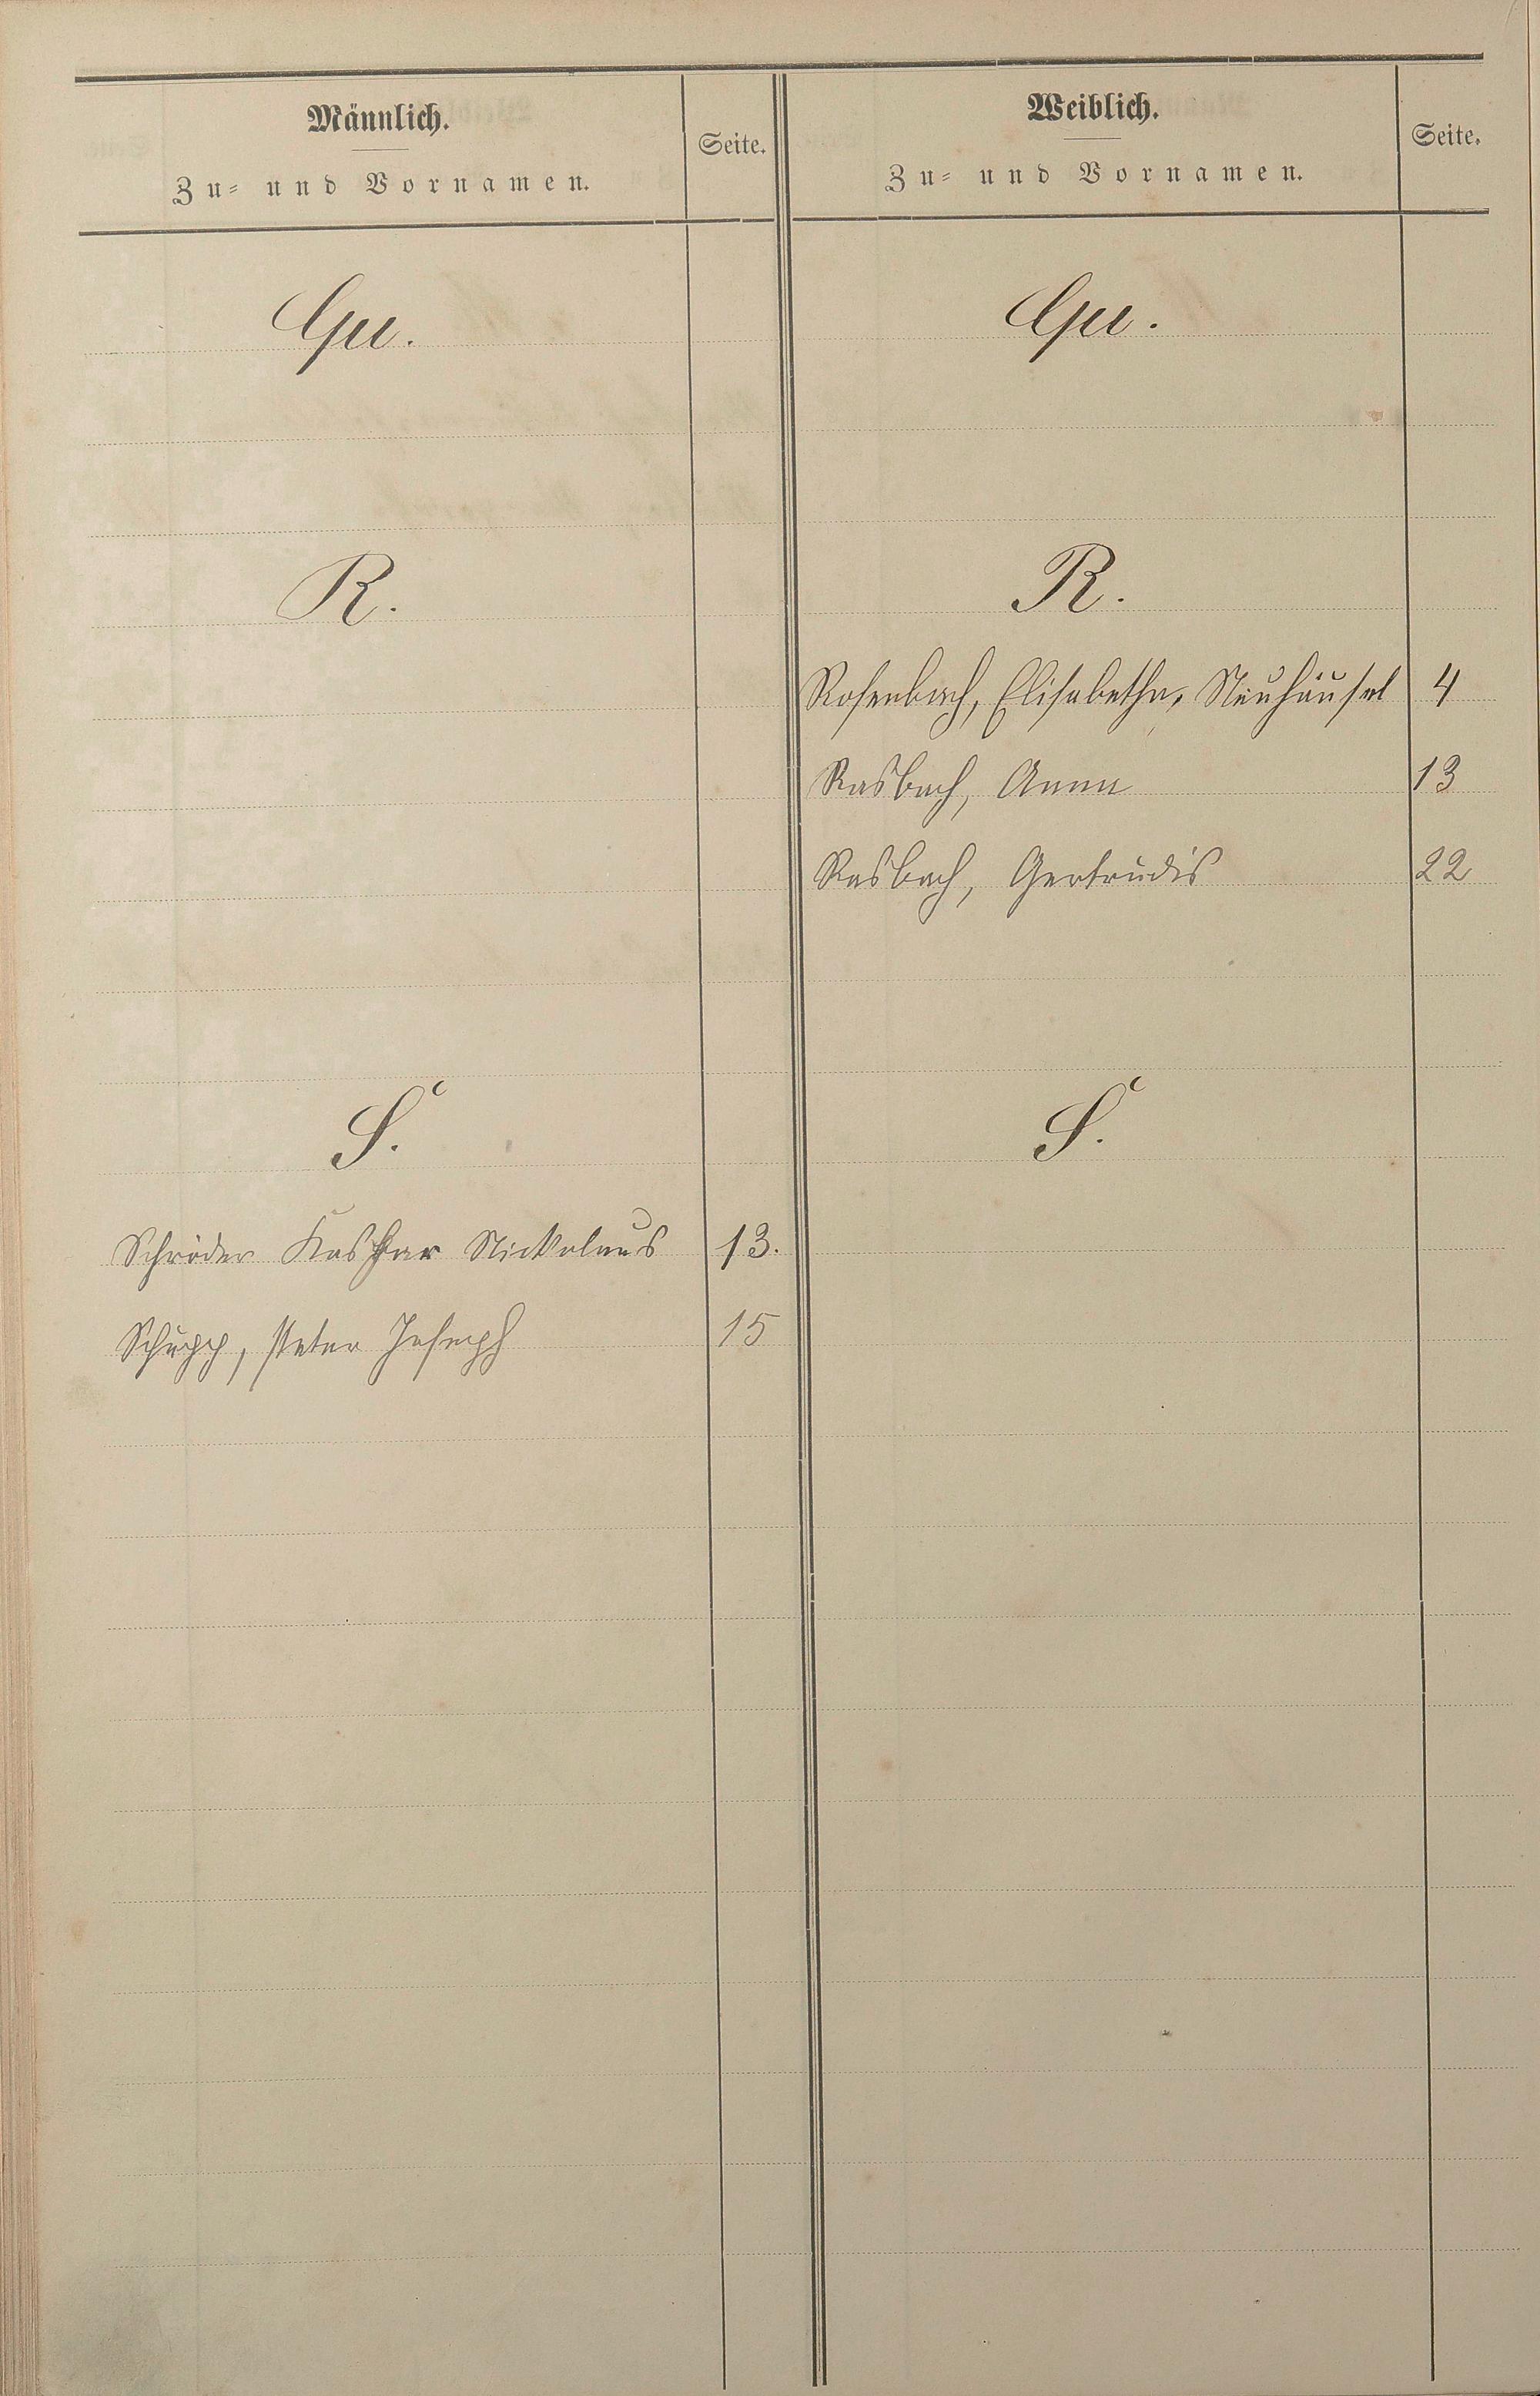 Männlich.
Zu- und Vornamen.
Seite.
Qu.
R.
S.
Schröder Kaspar Nickolaus 13.
Schupp, Peter Joseph 15
Weiblich.
Zu- und Vornamen.
Seite.
Qu.
R.
Rosenbach, Elisabetha, Neuhäusel 4
Rasbach, Anna 13
Rasbach, Gertrudis 22
S.